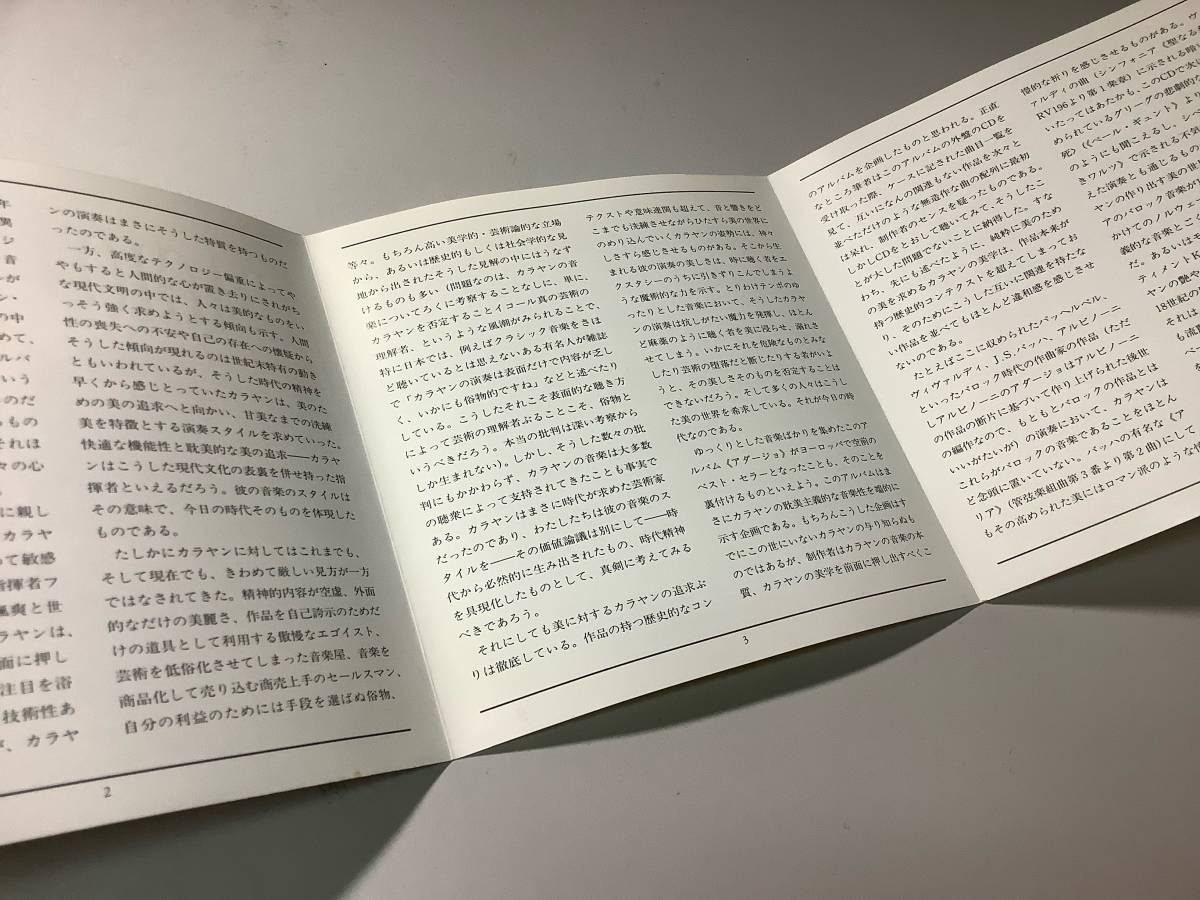 年
ンの演奏はまさにそうした特質を持つものだ
ったのである。
一方、高度なテクノロジー偏重によってや
やもすると人間的な心が置き去りにされがち
な現代文明の中では、人々は美的なものをい
っそう強く求めようとする傾向も示す。人間
性の喪失への不安や自己の存在への懐疑から
そうした傾向が現れるのは世紀末特有の動き
ともいわれているが、そうした時代の精神を
早くから感じとっていたカラヤンは、美のた
めの美の追求へと向かい、甘美なまでの洗練
美を特徴とする演奏スタイルを求めていった。
快適な機能性と耽美的な美の追求――カラヤ
ンはこうした現代文化の表裏を併せ持った指
揮者といえるだろう。彼の音楽のスタイルは
その意味で、今日の時代そのものを体現した
ものである。
たしかにカラヤンに対してはこれまでも、
そして現在でも、きわめて厳しい見方が一方
ではなされてきた。精神的内容が空虚、外面
的なだけの美麗さ、作品を自己誇示のためだ
けの道具として利用する傲慢なエゴイスト、
芸術を低俗化させてしまった音楽屋、音楽を
商品化して売り込む商売上手のセールスマン、
自分の利益のためには手段を選ばぬ俗物、
2
等々。もちろん高い美学的・芸術論的な立場
から、あるいは歴史的もしくは社会学的な見
地から出されたそうした見解の中にはうなず
けるものも多い（問題なのは、カラヤンの音
楽についてろくに考察することなしに、単に、
カラヤンを否定することイコール真の芸術の
理解者、というような風潮がみられることで、
特に日本では、例えばクラシック音楽をさほ
ど聴いているとは思えないある有名人が雑誌
で「カラヤンの演奏は表面だけで内容が乏し
く、いかにも俗物的ですね」などと述べたり
している。こうしたそれこそ表面的な聴き方
によって芸術の理解者ぶることこそ、俗物と
いうべきだろう。本当の批判は深い考察から
しか生まれない）。しかし、そうした数々の批
判にもかかわらず、カラヤンの音楽は大多数
の聴衆によって支持されてきたことも事実で
ある。
カラヤンはまさに時代が求めた芸術家
だったのであり、わたしたちは彼の音楽のス
タイルを――その価値論議は別にして――時
代から必然的に生み出されたもの、時代精神
を具現化したものとして、真剣に考えてみる
べきであろう。
それにしても美に対するカラヤンの追求ぶ
りは徹底している。作品の持つ歴史的なコン
テクストや意味連関も超えて、音と響きをど
こまでも洗練させながらひたすら美の世界に
のめり込んでいくカラヤンの姿勢には、神々
しさすら感じさせるものがある。そこから生
まれる彼の演奏の美しさは、時に聴く者をエ
クスタシーのうちに引きずりこんでしまうよ
うな魔術的な力を示す。とりわけテンポのゆ
ったりとした音楽において、そうしたカラヤ
ンの演奏は抗しがたい魔力を発揮し、ほとん
ど麻薬のように聴く者を美に浸らせ、溺れさ
せてしまう。いかにそれを危険なものとみな
したり芸術の堕落だと断じたりする者がいよ
うと、その美しさそのものを否定することは
できないだろう。そして多くの人々はこうし
た美の世界を希求している。それが今日の時
代なのである。
ゆっくりとした音楽ばかりを集めたこのア
ルバム《アダージョ》がヨーロッパで空前の
ベスト・セラーとなったことも、そのことを
裏付けるものといえよう。このアルバムはま
さにカラヤンの耽美主義的な音楽性を端的に
示す企画である。もちろんこうした企画はす
でにこの世にいないカラヤンの与り知らぬも
のではあるが、制作者はカラヤンの音楽の本
質、カラヤンの美学を前面に押し出すべくこ
3
のアルバムを企画したものと思われる。正直
なところ筆者はこのアルバムの外盤のCDを
受け取った際、ケースに記された曲目一覧を
見て、互いになんの関連もない作品を次々と
並べただけのような無造作な曲の配列に最初
は呆れ、制作者のセンスを疑ったものである。
しかしCDをとおして聴いてみて、そうしたこ
とが大した問題でないことに納得した。すな
わち、先にも述べたように、純粋に美のため
の美を求めるカラヤンの美学は、作品本来が
持つ歴史的コンテクストを超えてしまってお
り、そのためにこうした互いに関連を持たな
い作品を並べてもほとんど違和感を感じさせ
ないのである。
たとえばここに収められたパッヘルベル、
ヴィヴァルディ、J.S.バッハ、アルビノーニ
といったバロック時代の作曲家の作品（ただ
しアルビノーニのアダージョはアルビノーニ
の作品の断片に基づいて作り上げられた後世
の編作なので、もともとバロックの作品とは
いいがたいが）の演奏において、カラヤンは
これらがバロックの音楽であることをほとん
ど念頭に置いていない。バッハの有名な《ア
リア》（管弦楽組曲第3番より第2曲）にして
もその高められた美にはロマン派のような
憧的な祈りを感じさせるものがある。ヴ
ァルディの曲（シンフォニア《聖なる
RV196より第1楽章）に示される暗
いたってはあたかも、このCDで次に
められているグリーグの悲劇的な
死》（《ペール・ギュント》より
のようにも聞こえるし、シベ
きワルツ》で示される不気
えた演奏とも通じるもの
ヤンの作り出す美の世
アのバロック音楽が
かけてのノルウェ
義的な音楽とこ
だ。あるいは
ティメントK
ヤンの艶
18世紀の
それは
も流